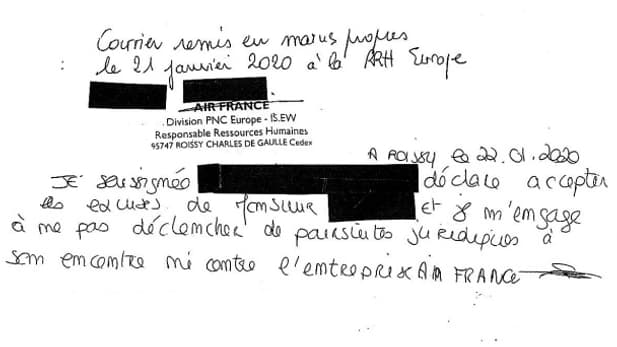 Courrier remis en mains propres
: le 21 janvier 2020 à la RRH Europe
AIR FRANCE
Division PNC Europe - IS.EW
Responsable Ressources Humaines
95747 ROISSY CHARLES DE GAULLE Cedex
A ROISSY le 22.01.2020
JE soussignée déclare accepter
les excuses de Monsieur et je m'engage
à ne pas déclencher de poursuites juridiques à
son encontre ni contre l'entreprise AIR FRANCE